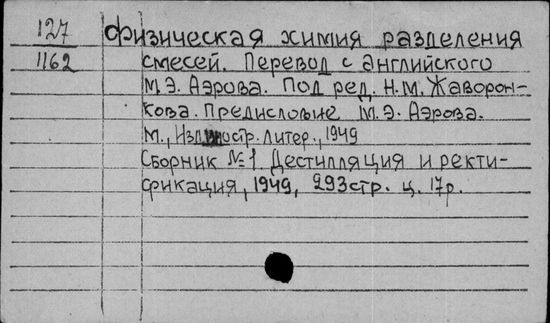 127 Физическая химия разделения
1162 смесей. Перевод с английского
М.Э. Аэрова. Под ред. Н.М. Жаворон-
кова. Предисловие М.Э. Аэрова.
М., Изд. иностр. литер., 1949
Сборник №1. Дестилляция и ректи-
фикация, 1949, 293 стр. ц. 17р.